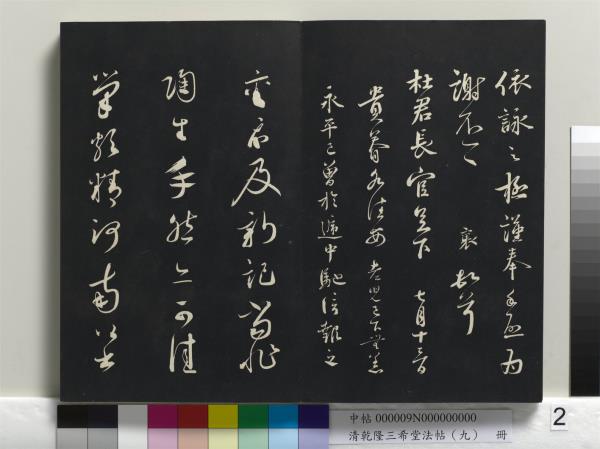 依詠之極謹奉手啟為
謝不一一 襄頓首
杜君長官足下 七月十三日
貴眷各佳安 老兒已下無恙
永平已曾於遞中馳信報之
襄示及新記當非
陶生手然亦可佳
筆頗精河南公書
中帖 000009N000000000
清乾隆三希堂法帖（九） 冊
2